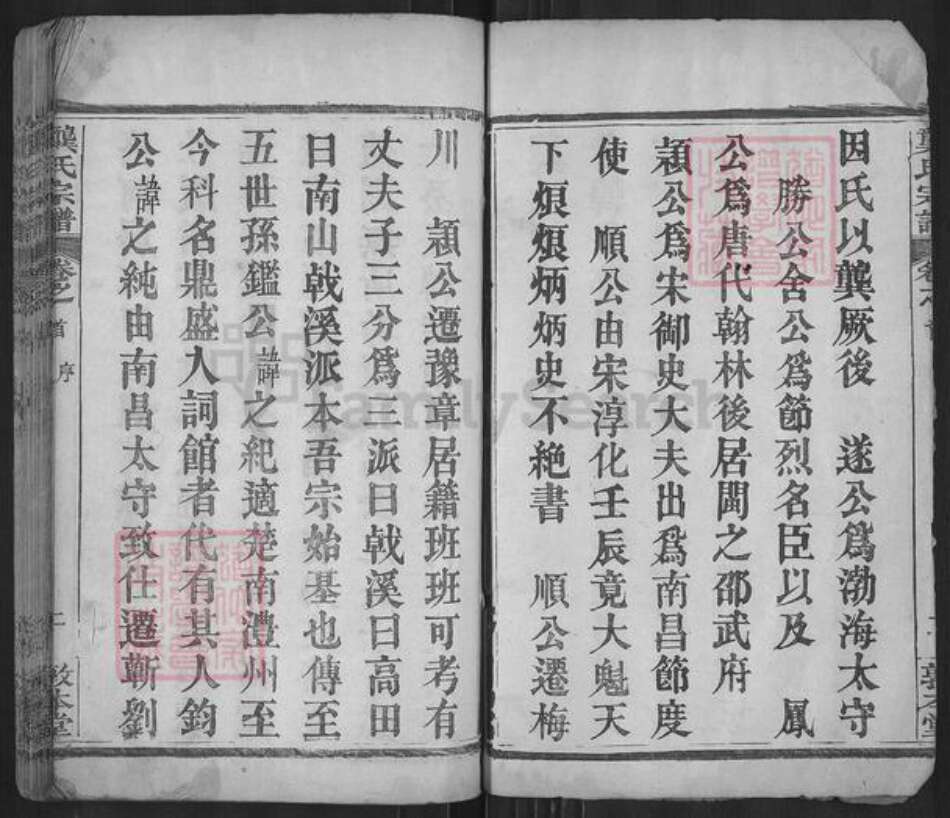 因氏以龔厥後 遂公爲渤海太守
勝公舍公爲節烈名臣以及 鳳
公爲唐代翰林後居閩之邵武府
頴公爲宋御史大夫出爲南昌節度
使 順公由宋淳化壬辰竟大魁天
下烺烺炳炳史不絶書 順公遷梅
川 頴公遷豫章居籍班班可考有
丈夫子三分爲三派曰戟溪曰高田
曰南山戟溪派本吾宗始基也傳至
五世孫鑑公諱之紀適楚南澧州至
今科名鼎盛入詞館者代有其人鈞
公諱之純由南昌太守致仕遷蘄劉
龔氏宗譜 卷之首 序 二 敦本堂
FamilySearch